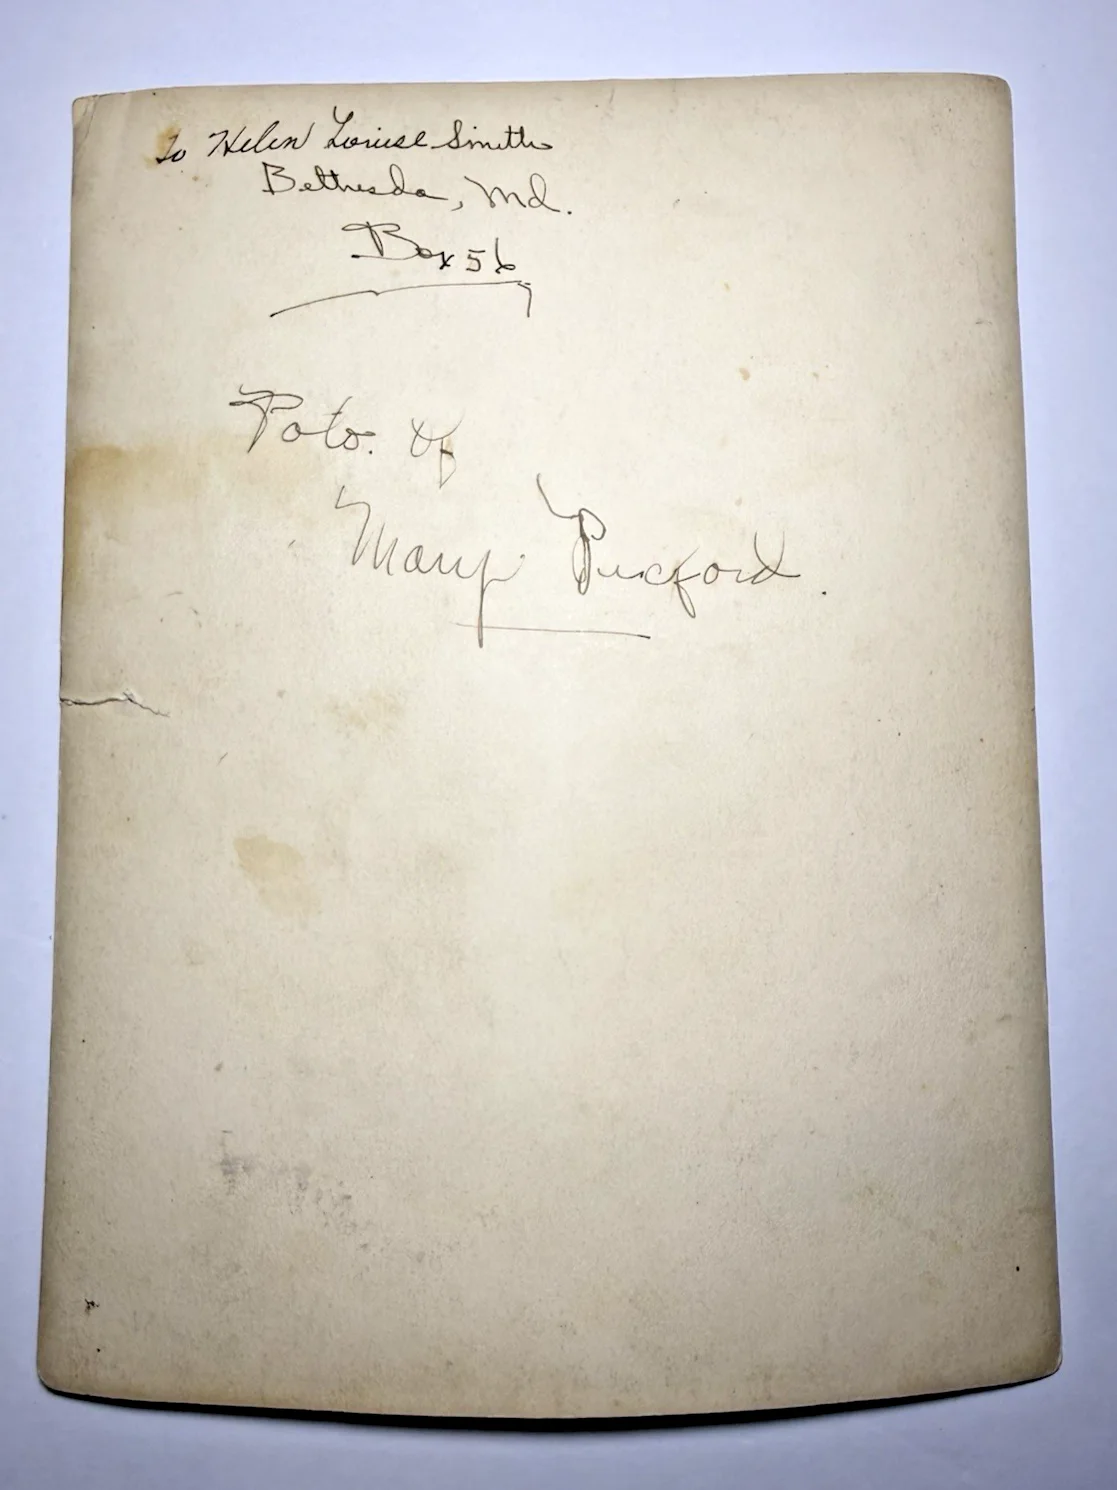 To Helen Louise Smith
Bethesda, Md.
Box 56
Poto. of
Mary Pucford.